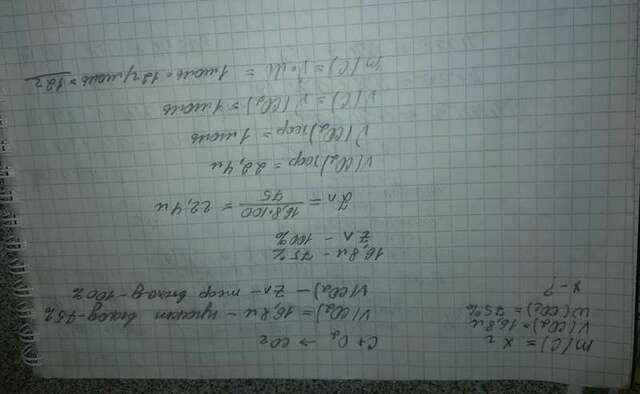 m(C) = x г
V(CO₂) = 16,8 л
W(CO₂) = 75%
x - ?
C + O₂ → CO₂
V(CO₂) = 16,8 л - практ выход - 75%
V(CO₂) - Zл - теор выход - 100%
16,8 л - 75%
Z л - 100%
Z л = 16,8·100 / 75 = 22,4 л
V(CO₂) теор = 22,4 л
ν(CO₂) теор = 1 моль
ν(C) = ν(CO₂) = 1 моль
m(C) = ν·M = 1 моль · 12 г/моль = 12 г